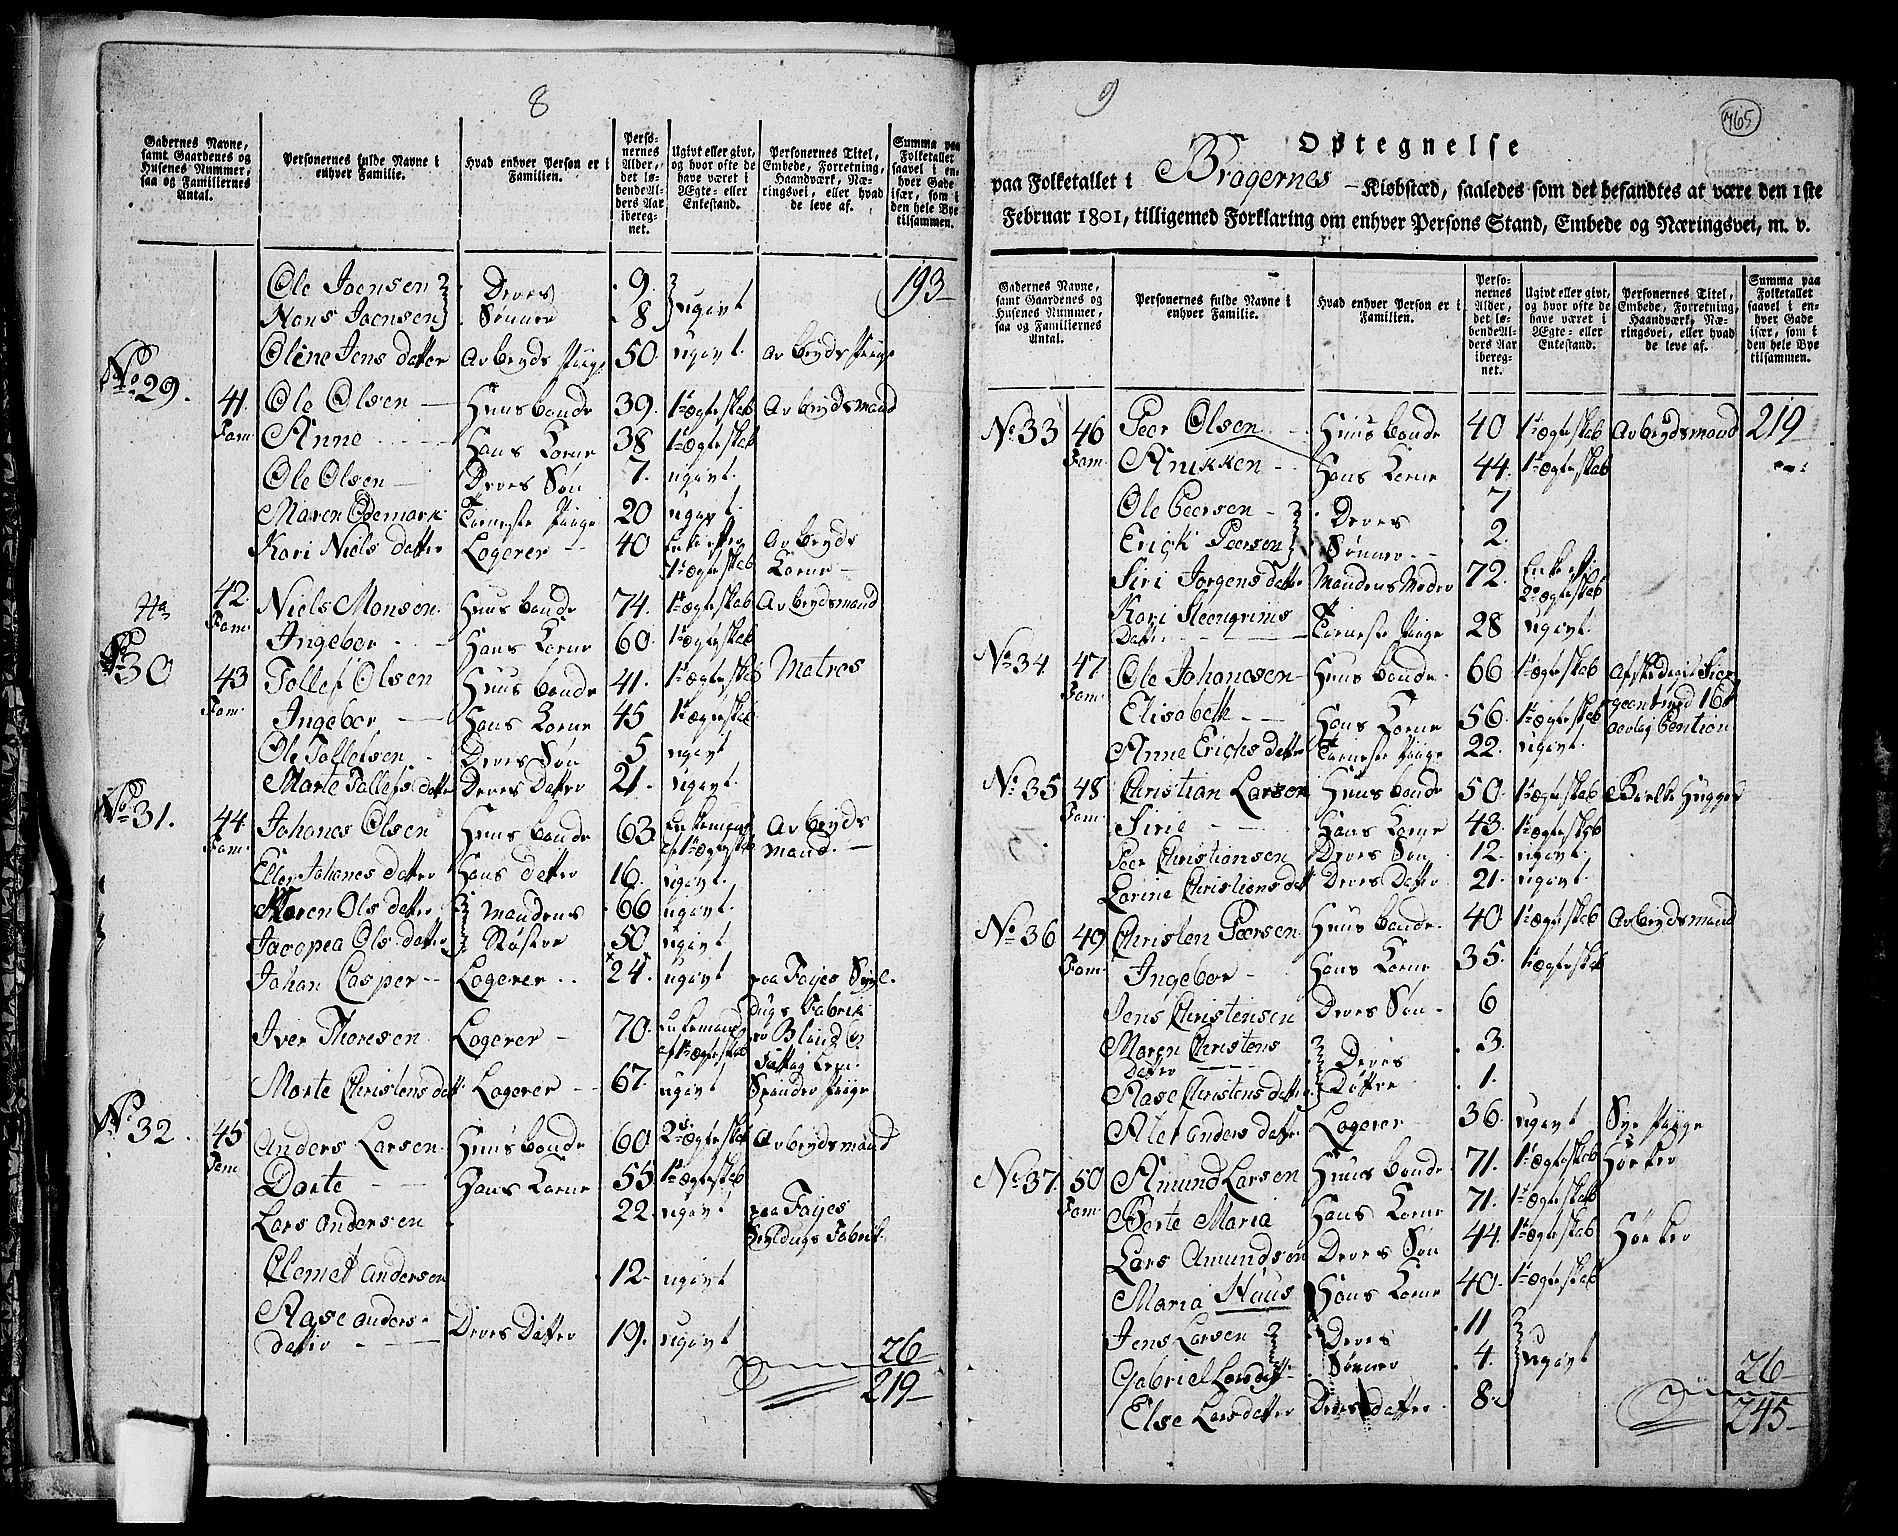 8
Gadernes Navne, samt Gaardenes og Husenes Nummer, saa og Familiernes Antal.
Personernes fulde Navne i enhver Familie.
Hvad enhver Person er i Familien.
Personernes Alder, det løbende Alders Aar iberegnet.
Ugivt eller givt, og hvor ofte de have været i Ægte- eller Enkestand.
Personernes Titel, Embede, Forretning, Haandværk, Næringsvei, eller hvad de leve af.
Summa paa Folketallet saavel i enhver Gade især, som i den hele Bye tilsammen.
Ole Joensen Deres 9. 193
Hans Joensen Sønner 8 ugivt
Oline Jens datter Arbeyds Piige 50 ugivt Arbeyds Piige
No 29. 41. Fam Ole Olsen Huusbonde 39. 1te Ægteskab Arbeydsmand
Anne Hans Kone 38 1te Ægteskab
Ole Olsen Deres Søn 7. ugivt
Maren Odemark Tieneste Piige 20 ugivt
Kari Niels datter Logerer 40 Enke efter 1te Ægteskab Arbeyds Kone
42. Fam. Niels Monsen Huusbonde 74. 1te Ægteskab Arbeydsmand
Ingebor Hans Kone 60 1te Ægteskab
No 30 43 Fam. Tollef Olsen Huusbonde 41. 1te Ægteskab Matros
Ingebor Hans Kone 45 1te Ægteskab
Ole Tollefsen Deres Søn 5 ugivt
Marte Tollefs datter Deres Datter 21. ugivt
No 31. 44 Fam. Johanes Olsen Huusbonde 63 Enkemand ef 1te Ægteskab Arbeydsmand
Ellen Johanes datter Hans datter 16. ugivt
Maren Ols datter Mandens 66 ugivt
Jacopea Ols datter Søstre 50 ugivt
Johan Casper Logerer 24. ugivt paa Fayes Seyldugs Fabrik
Iver Thoresen Logerer 70. Enkemand ef 1te Ægteskab er Blind
Marte Christens datt. Logerer 67. ugivt Spinder Piige
No 32. 45 Fam Anders Larsen Huusbonde 60 2det Ægteskab Arbeydsmand
Dorte Hans Kone 55 1te Ægteskab
Lars Andersen 22. ugivt paa Fayes Seyldugs Fabrik
Clemet Andersen 12 ugivt
Aase Anders datter Deres Datter 19. ugivt
26
219
9
465
Optegnelse
paa Folketallet i Bragernes Kiøbstæd, saaledes som det befandtes at være den 1ste
Februar 1801, tilligemed Forklaring om enhver Persons Stand, Embede og Næringsvei, m. v.
Gadernes Navne, samt Gaardenes og Husenes Nummer, saa og Familiernes Antal.
Personernes fulde Navne i enhver Familie.
Hvad enhver Person er i Familien.
Personernes Alder, det løbende Alders Aar iberegnet.
Ugivt eller givt, og hvor ofte de have været i Ægte- eller Enkestand.
Personernes Titel, Embede, Forretning, Haandværk, Næringsvei, eller hvad de leve af.
Summa paa Folketallet saavel i enhver Gade især, som i den hele Bye tilsammen.
No 33 46 Fam. Peer Olsen Huusbonde 40 1te Ægteskab Arbeydsmand 219
Anikken Hans Kone 44. 1te Ægteskab
Ole Peersen Deres 7
Erick Peersen Sønner 2.
Siri Jorgens datter Mandens Moder 72. Enke ef 2det Ægteskab
Kari Steengrims Datter Tieneste Piige 28 ugivt.
No 34 47 Fam. Ole Johanesen Huusbonde 66 1te Ægteskab Afskediget Siergeant med 16 aarlig Pention
Elisabeth Hans Kone 56. 1te Ægteskab
Anne Erichs datter Tieneste Piige 22. ugivt.
No 35 48 Fam. Christian Larsen Huusbonde 50. 1te Ægteskab Bielke Hugger
Sirie Hans Kone 43. 1te Ægteskab
Peer Christiansen Deres Søn 12. ugivt.
Karine Christians datt. Deres Datter 21. ugivt.
No 36 49 Fam. Christen Peersen Huusbonde 40 1te Ægteskab Arbeydsmand
Ingebor Hans Kone 35. 1te Ægteskab
Jens Christensen Deres Søn 6
Maren Christens datter Deres 3.
Aase Christens datter Døttre 1.
Alet Anders datter Logerer 36. ugivt Sye Piige
No 37 50 Fam. Amund Larsen Huusbonde 71. 1te Ægteskab Høker
Berte Maria Hans Kone 71. 1te Ægteskab
Lars Amundsøn Deres Søn 44 1te Ægteskab Høker
Maria Huus Hans Kone 40. 1te Ægteskab
Jens Larsen Deres 11
Gabriel Larsen Sønner 4. ugivt
Else Larsdatter Deres datter 8
26
245